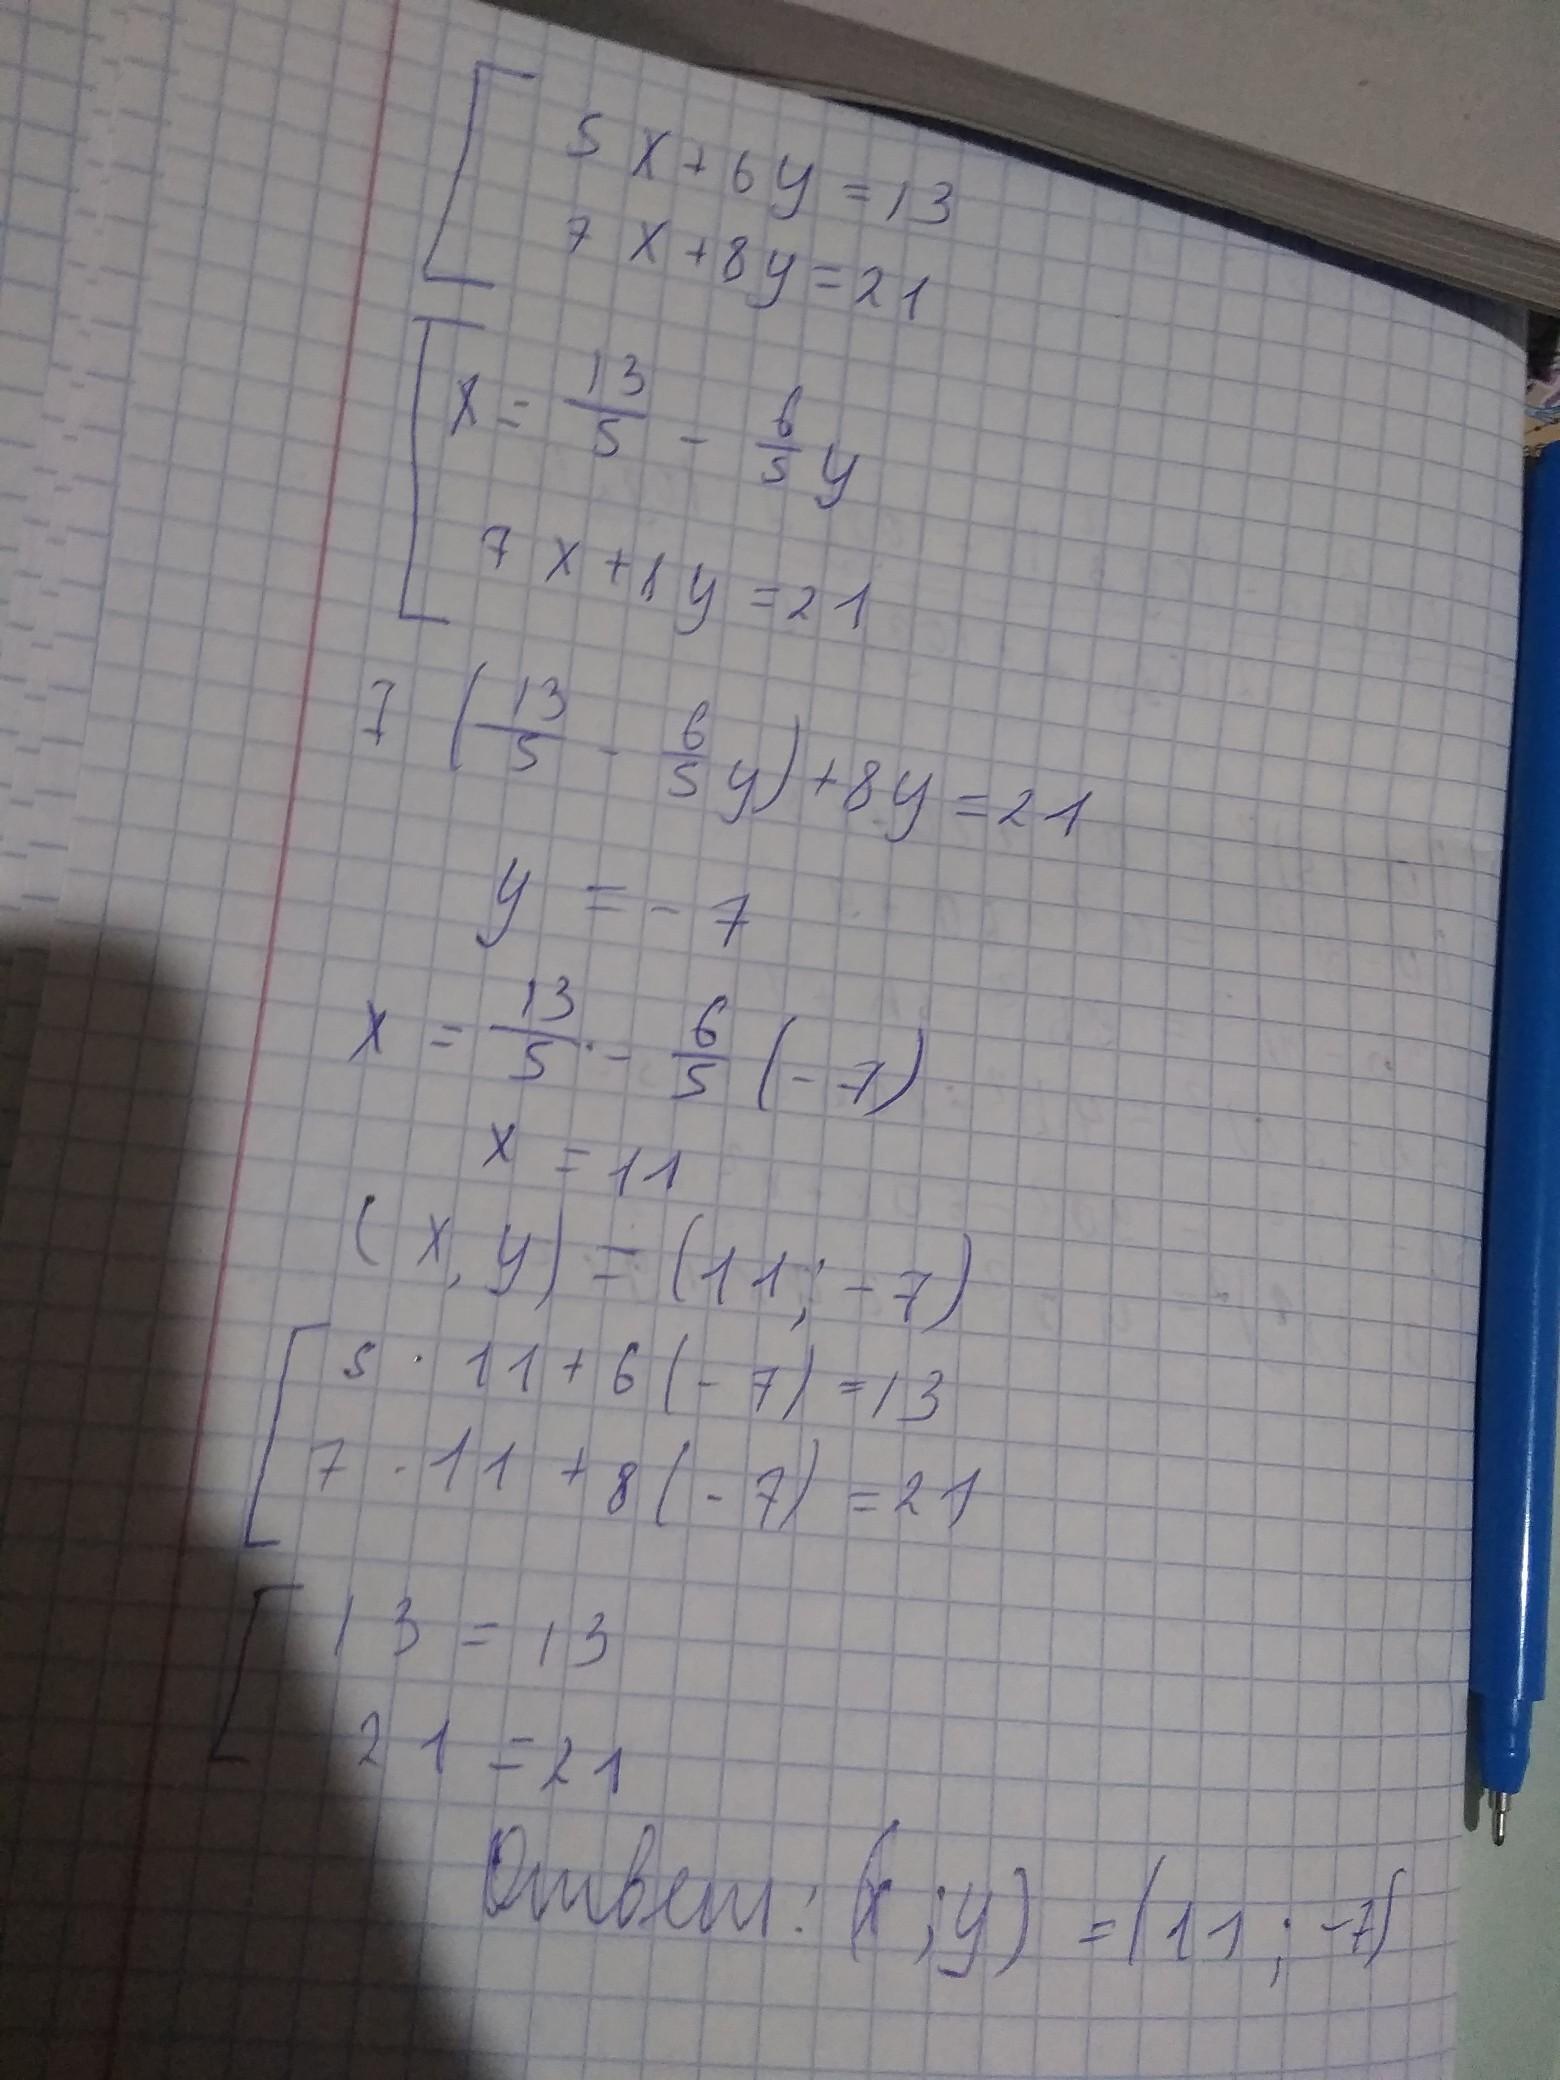 5x+6y=13
7x+8y=21
x = 13/5 - 6/5 y
7x+8y=21
7 (13/5 - 6/5 y)+8y=21
y = -7
x = 13/5 - 6/5 (-7)
x = 11
(x, y) = (11; -7)
5 · 11+6(-7)=13
7 · 11+8(-7)=21
13 = 13
21 = 21
Ответ: (x;y) =(11; -7)